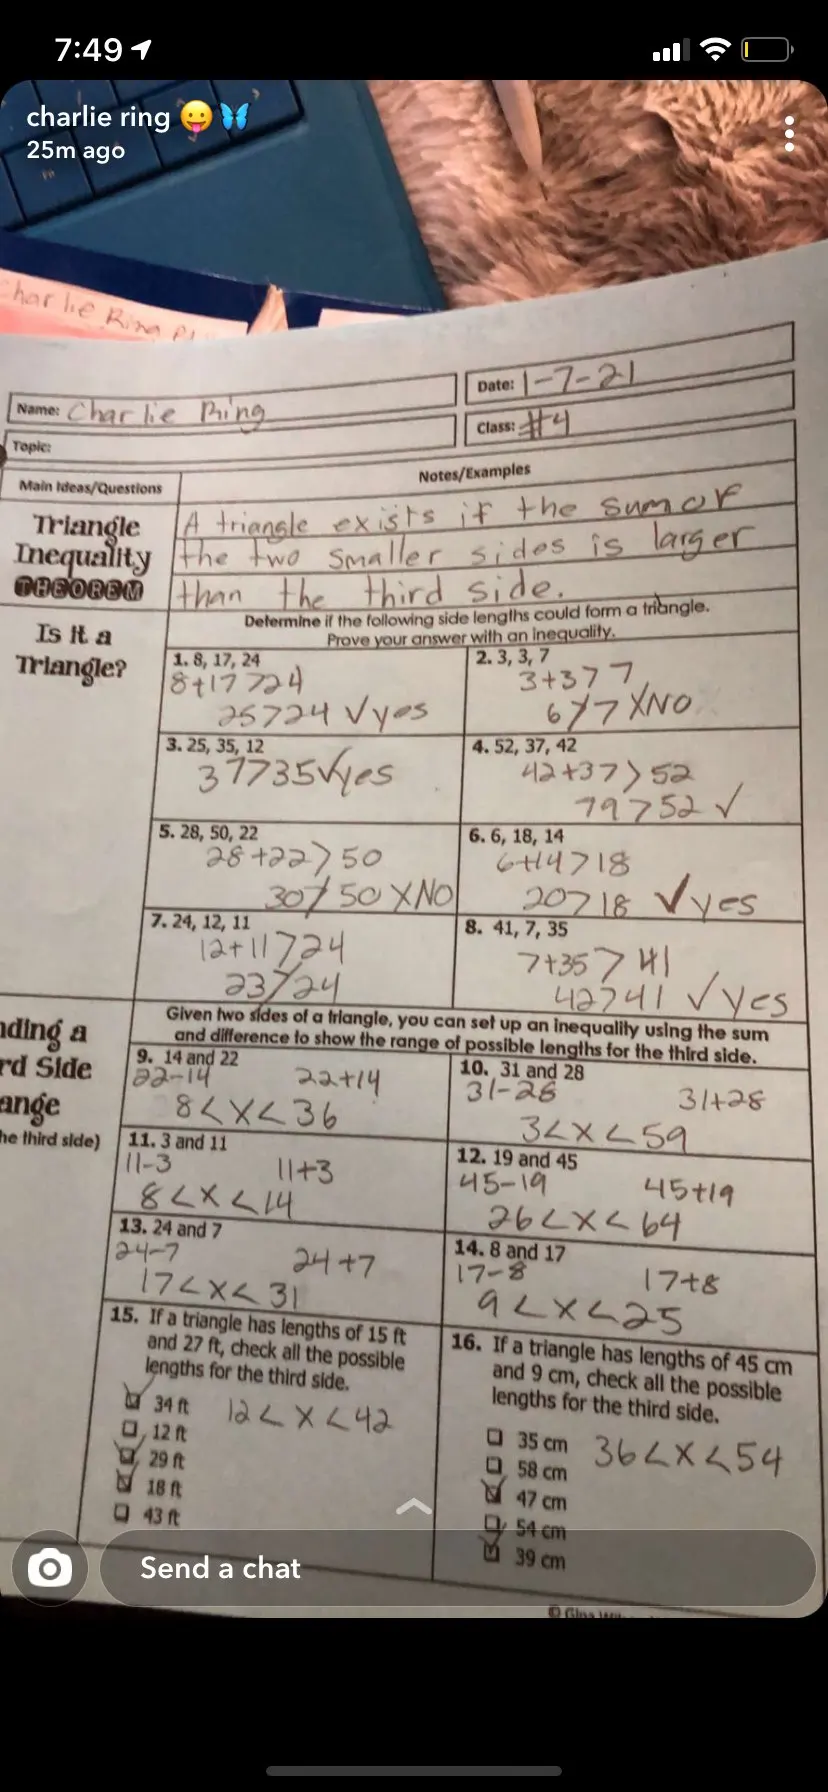 7:49
charlie ring 😛🦋
25m ago
Charlie Ring
Name: Charlie Ring
Date: 1-7-21
Topic:
Class: #4
Main Ideas/Questions
Notes/Examples
Triangle
Inequality
THEOREM
A triangle exists if the sum of
the two smaller sides is larger
than the third side.
Is It a
Triangle?
Determine if the following side lengths could form a triangle.
Prove your answer with an inequality.
1. 8, 17, 24
8+17>24
25>24 ✓yes
2. 3, 3, 7
3+3>7
6≯7 XNO
3. 25, 35, 12
37>35✓yes
4. 52, 37, 42
42+37>52
79>52 ✓
5. 28, 50, 22
28+22>50
30≯50 XNO
6. 6, 18, 14
6+14>18
20>18 ✓yes
7. 24, 12, 11
12+11>24
23≯24
8. 41, 7, 35
7+35>41
42>41 ✓yes
nding a
rd Side
ange
he third side)
Given two sides of a triangle, you can set up an inequality using the sum
and difference to show the range of possible lengths for the third side.
9. 14 and 22
22-14 22+14
8<x<36
10. 31 and 28
31-28 31+28
3<x<59
11. 3 and 11
11-3 11+3
8<x<14
12. 19 and 45
45-19 45+19
26<x<64
13. 24 and 7
24-7 24+7
17<x<31
14. 8 and 17
17-8 17+8
9<x<25
15. If a triangle has lengths of 15 ft
and 27 ft, check all the possible
lengths for the third side.
34 ft 12<x<42
12 ft
29 ft
18 ft
43 ft
16. If a triangle has lengths of 45 cm
and 9 cm, check all the possible
lengths for the third side.
35 cm 36<x<54
58 cm
47 cm
54 cm
39 cm
Send a chat